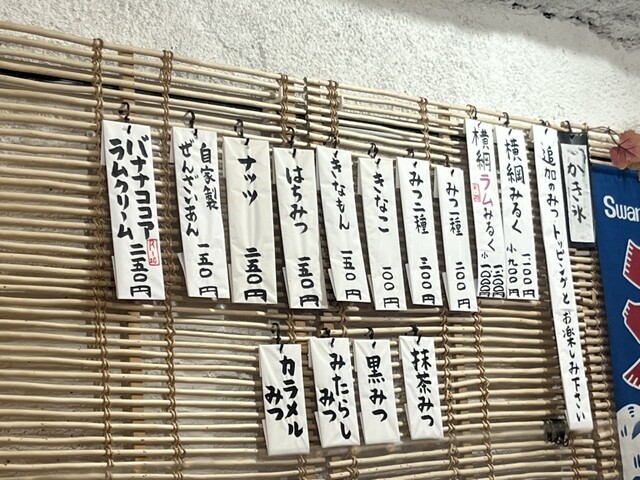 かき氷
追加のみつトッピングとお楽しみ下さい
横綱みるく
一、一〇〇円
小 九〇〇円
横綱ラムみるく
みつ一種 二〇〇円
みつ二種 三〇〇円
きなこ 一〇〇円
きなもん 一五〇円
はちみつ 一五〇円
ナッツ 二五〇円
自家製
ぜんざいあん 一五〇円
バナナココア
ラムクリーム 二五〇円
抹茶みつ
黒みつ
みたらし
みつ
カラメル
みつ
Swan